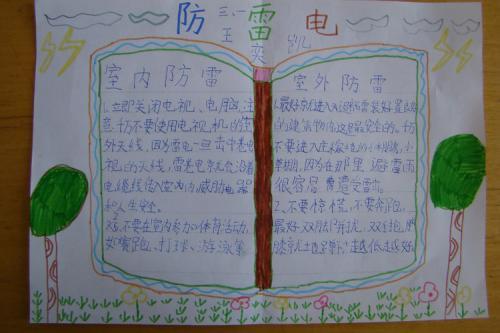 防雷电
三、一
王奕
室内防雷
1.立即关闭电视、电脑,注
意,千万不要使用电视机的室
外天线,因为雷电一旦击中电
视的天线,雷电就会沿着
电缆线传入室内,威胁电器
和人生安全。
2.不要在室内参加体育活动,
如赛跑、打球、游泳等
室外防雷
1.最好就进入避雷装好置的
的建筑物内这是最安全的。千万
不要进入在
草棚,因为在那里避雷雨
很容易遭受雷
2、不要惊慌,不要奔跑,
最好双脚并拢,双手抱
膝就地蹲下越低越好